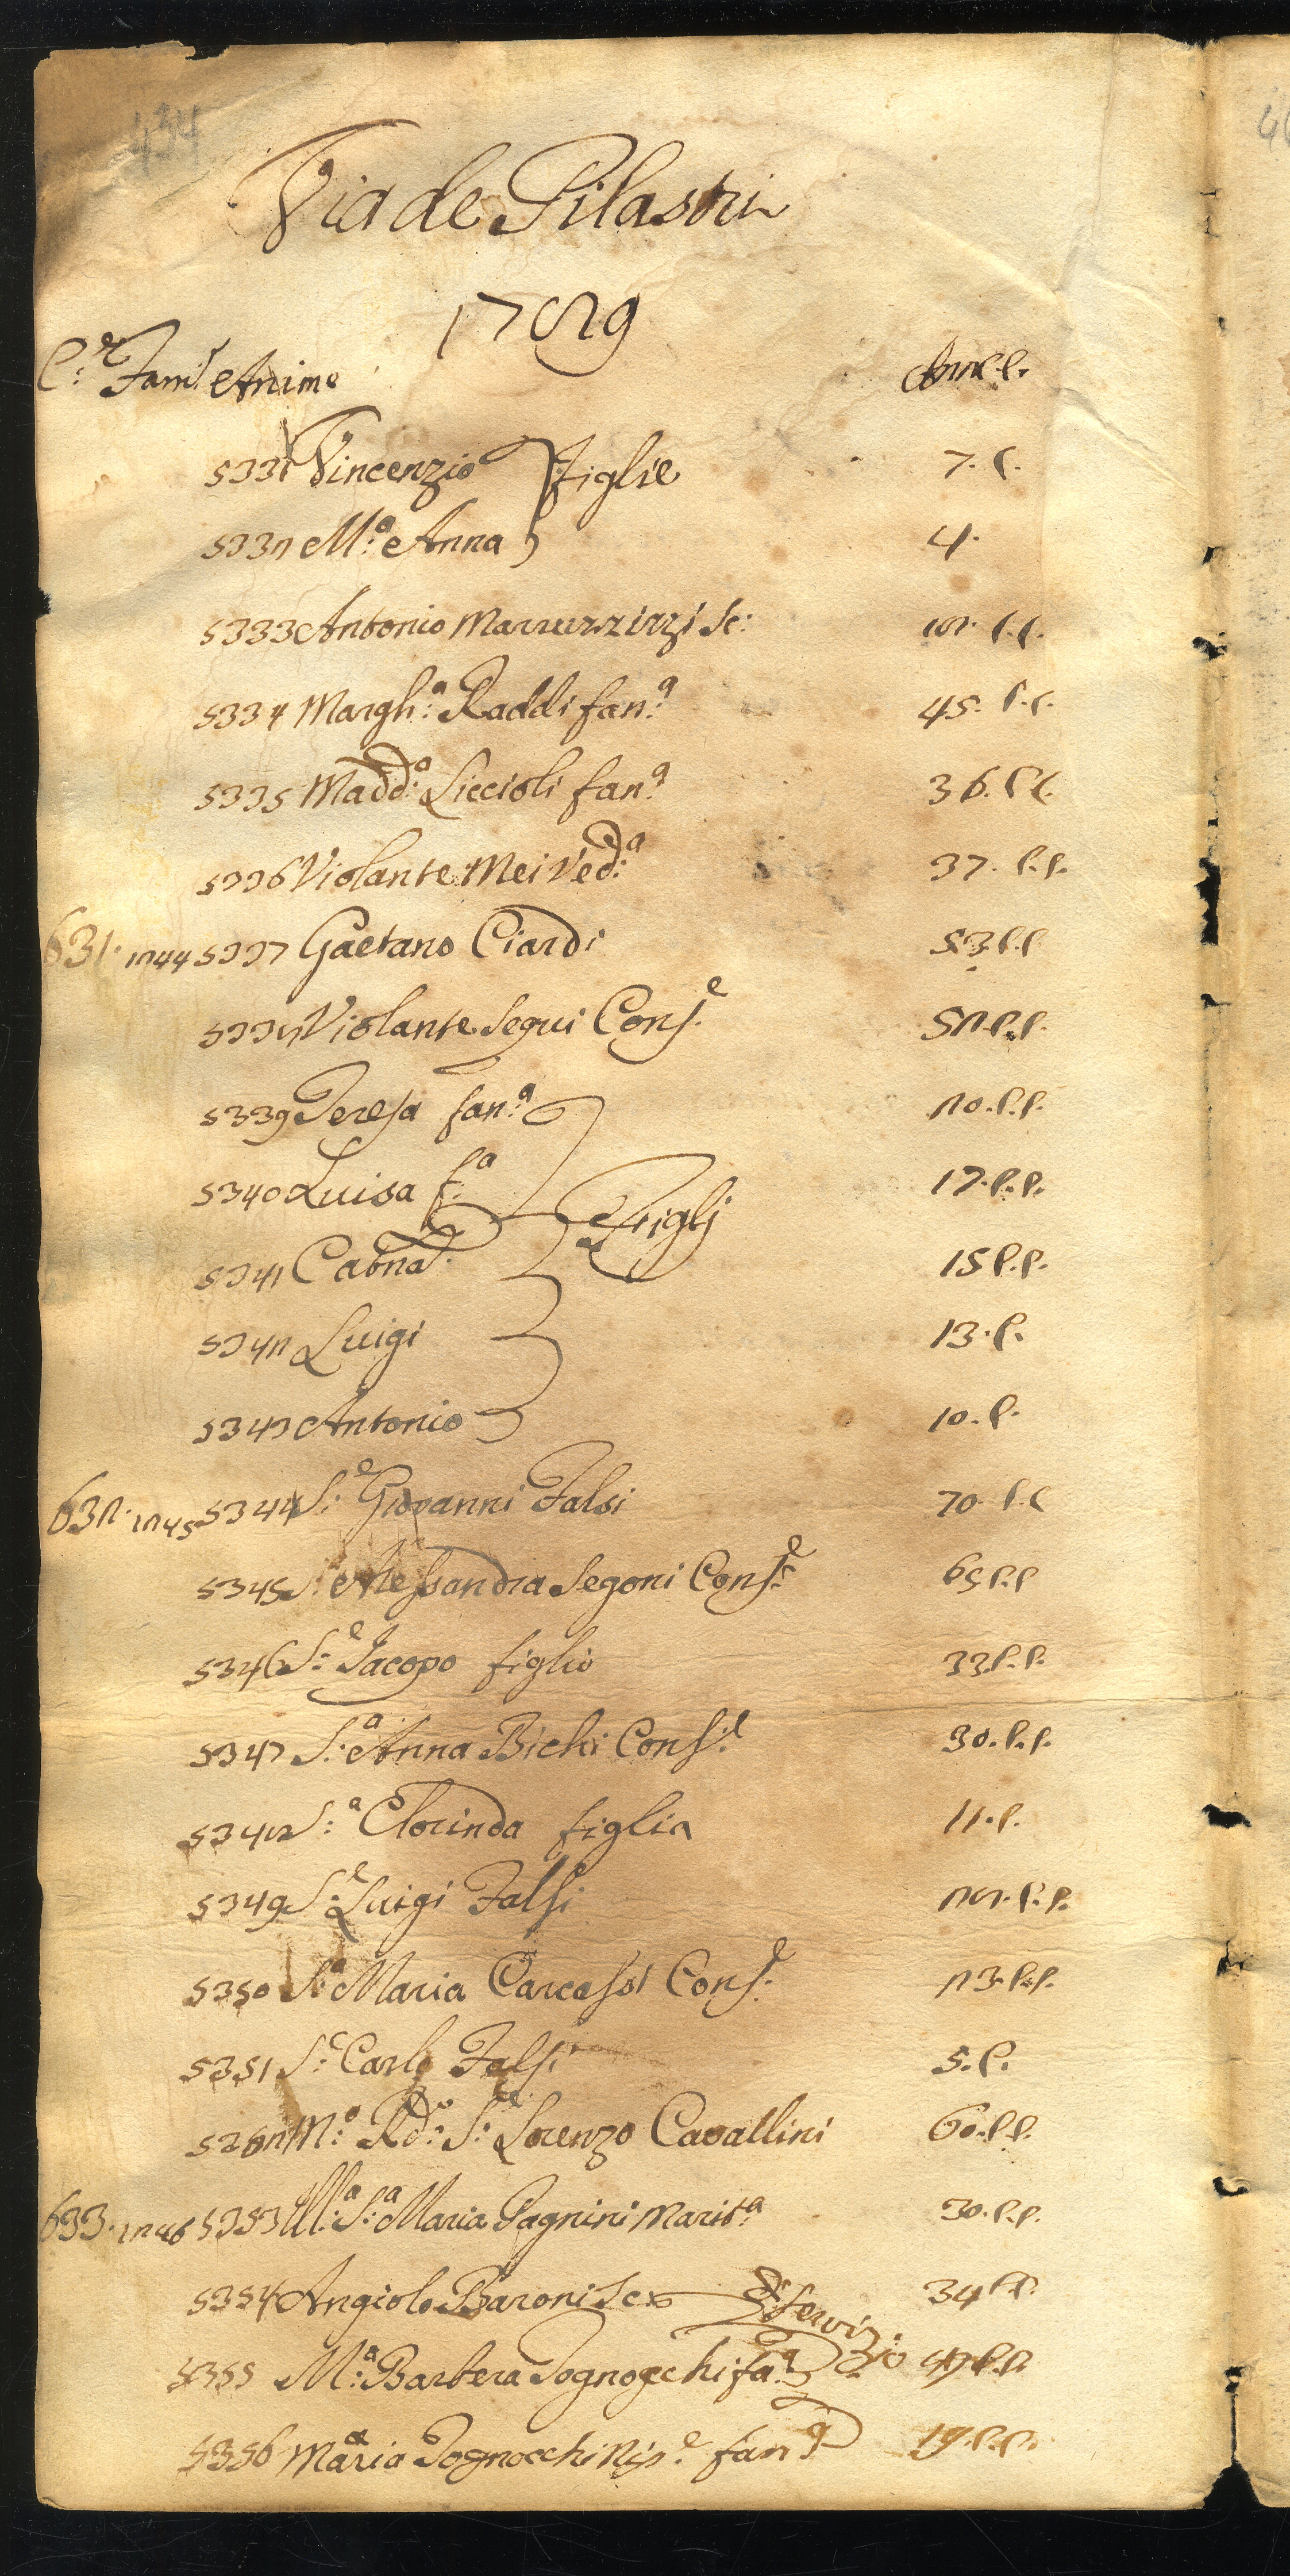 434
Via de Pilastri
1729
C.e Fam.e Anime Anni C.C.
5331 Vincenzio figlie 7. C.
5332 M.a Anna 4.
5333 Antonio Se: C.C.
5334 Margh.a Raddi fan.a 45. C.C.
5335 Madd.a Liccioli fan.a 36. C.C.
5336 Violante Mei Ved.a 37. C.C.
631. 1244 5337 Gaetano Ciardi 53 C.C.
5338 Violante Segui Cons.e 52. C.C.
5339 Teresa fan.a 20. C.C.
5340 Luisa f.a Figlj 17. C.C.
5341 Catna. 15 C.C.
5342 Luigi 13. C.
5343 Antonio 10. C.
632. 1245 5344 S.e Giovanni Falsi 70. C.C
5345 S. Alessandra Segoni Cons.e 65 C.C
5346 S.e Jacopo figlio 33. C.C.
5347 S.a Anna Bichi Cons.e 30. C.C.
5348 S.a Clorinda figlia 11. C.
5349 S.e Luigi Falsi 28. C.C.
5350 S.a Maria Carcassi Cons.e 23. C.C.
5351 S.e Carlo Falsi 5. C.
M.o Rd.o S.e Lorenzo Cavallini 60. C.C.
633. 1246 5353 Ill.a S.a Maria Pagnini Marit.a 30. C.C.
5354 Angiolo Baroni Se. Di Servizio 34 C.C.
5355 M.a Barbera Tognocchi fa.a C.C.
5356 Maria Tognocchi Nip.e fan.a 19. C.C.